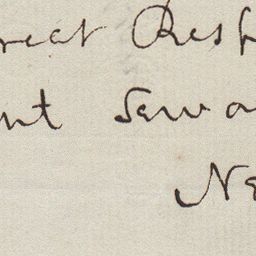 reat Resp
nt Serva
Ne